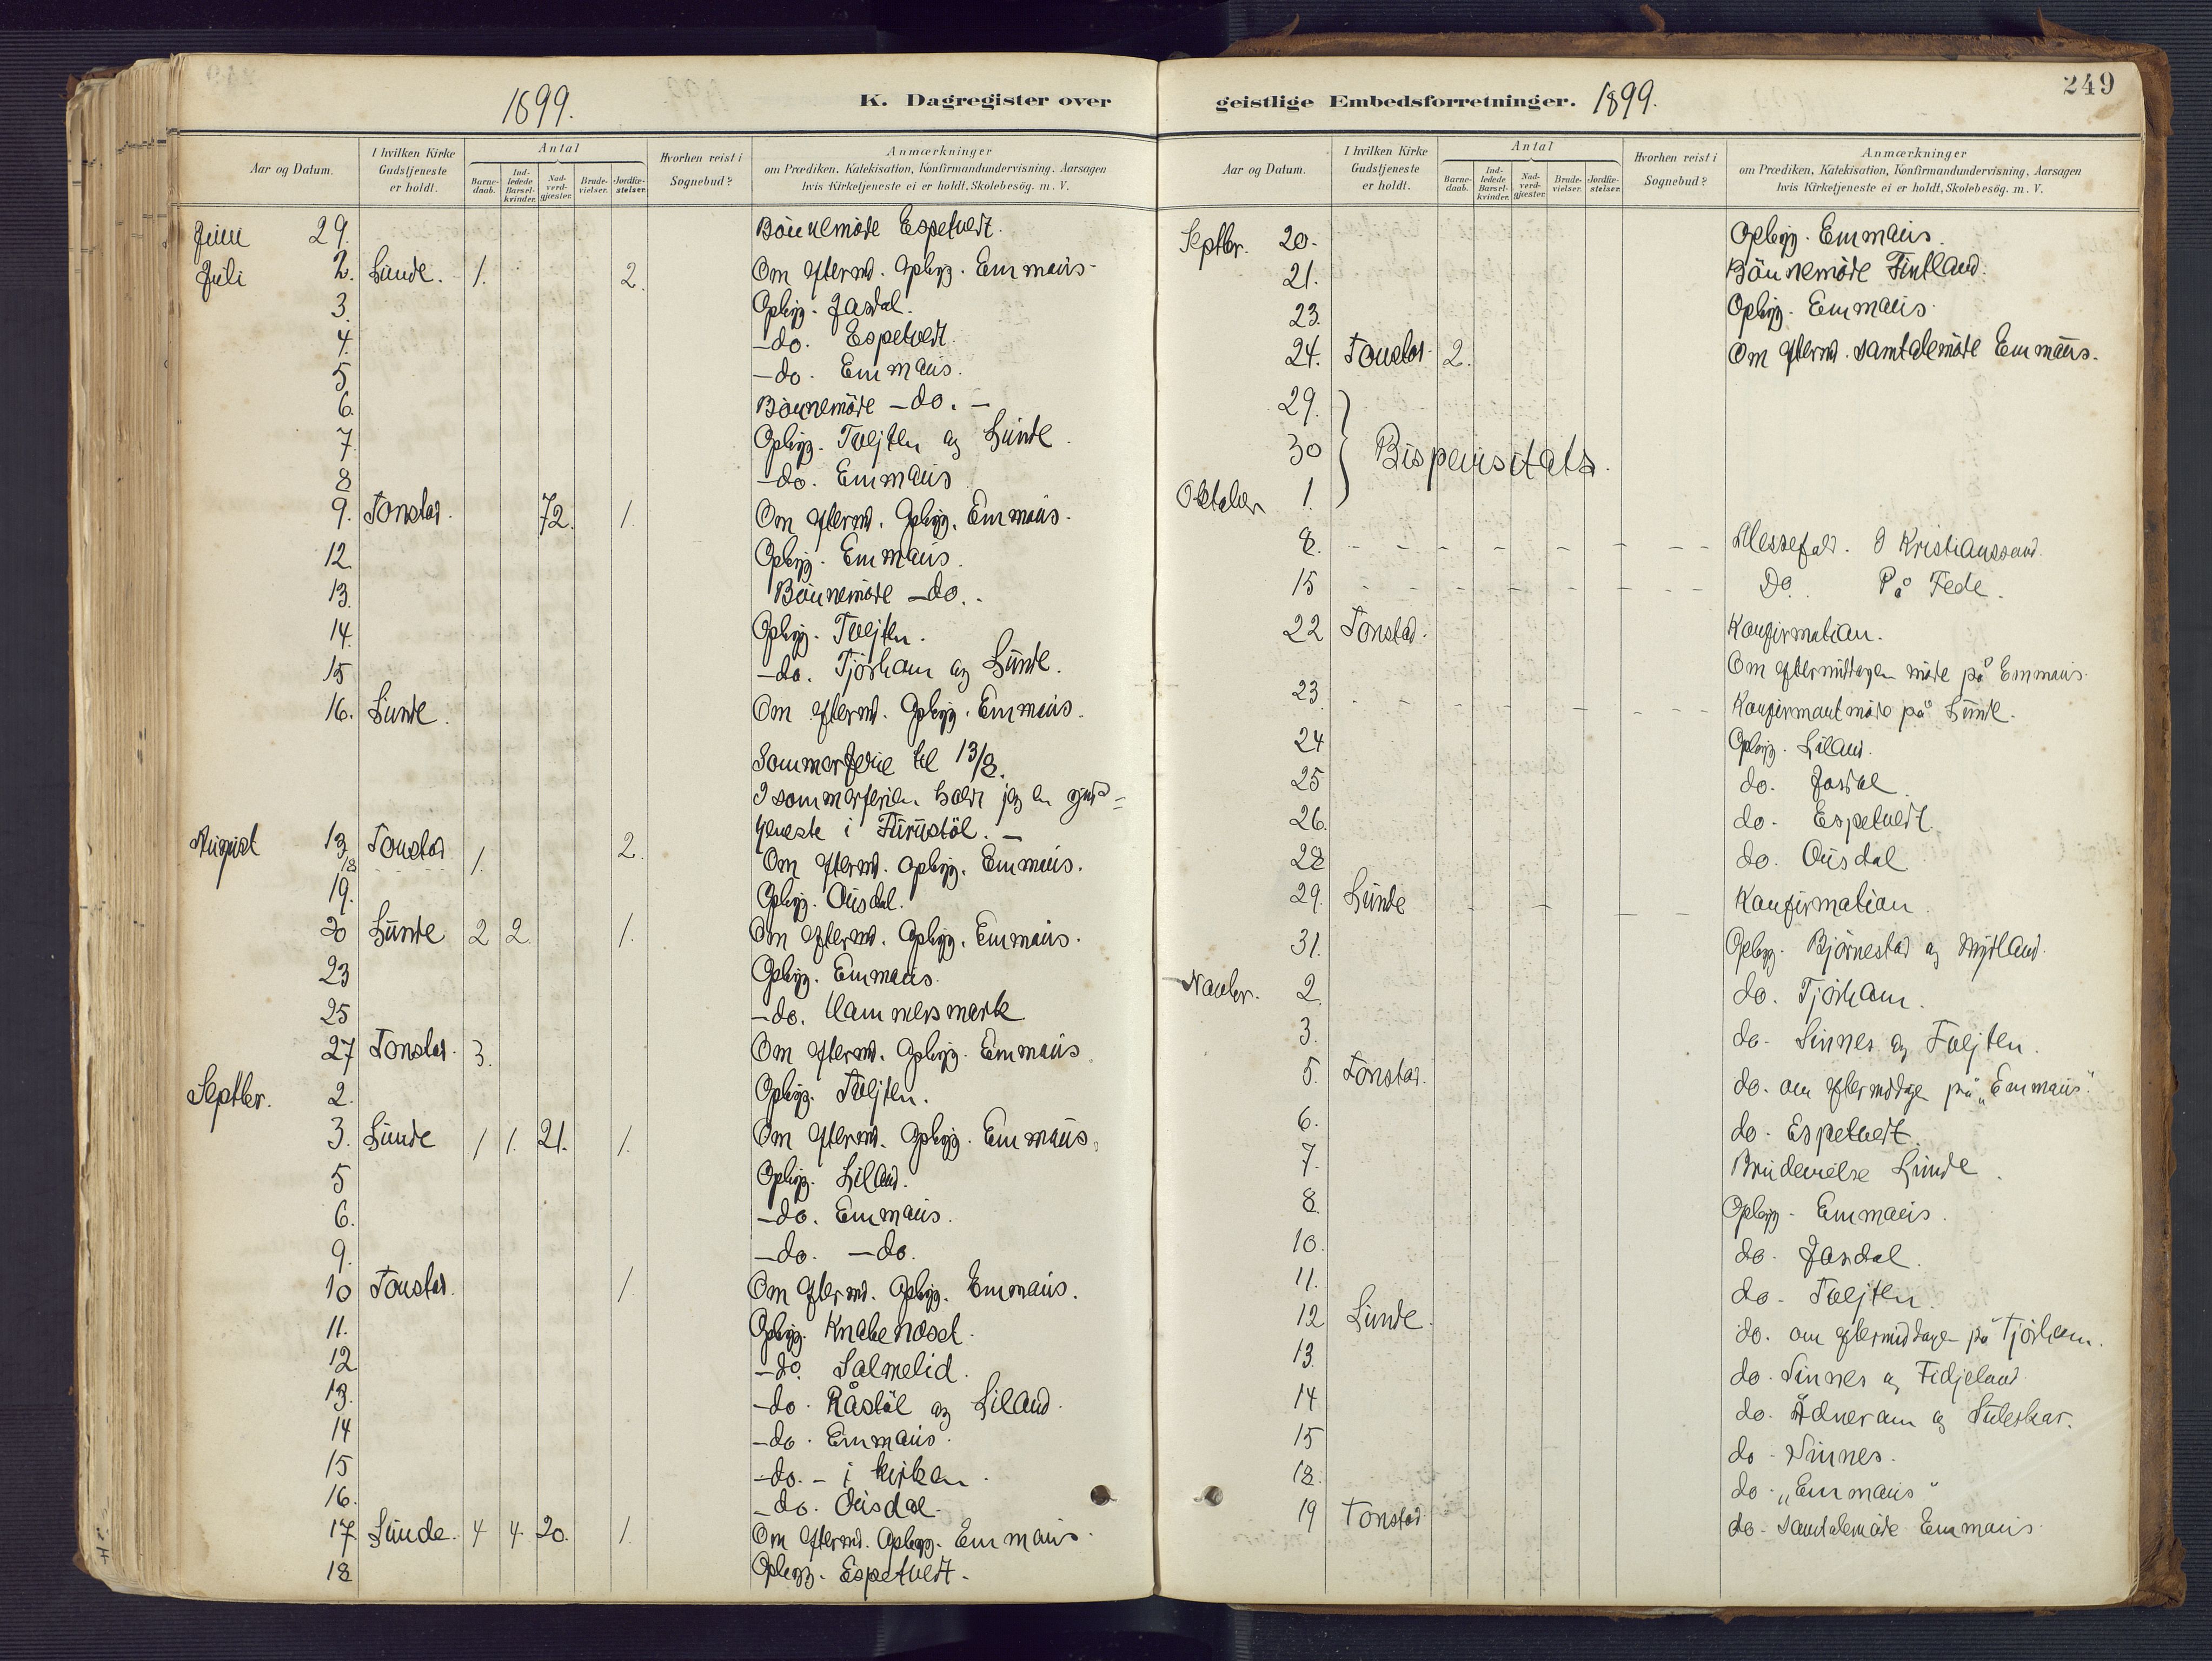 1899.
K. Dagregister over
Aar og Datum.
I hvilken Kirke Gudstjeneste er holdt.
Antal
Barnedaab.
Indledede Barselkvinder.
Nadverdgjæster.
Brudevielser.
Jordfæstelser.
Hvorhen reist i Sognebud?
Anmærkninger
om Prædiken, Katekisation, Konfirmandundervisning, Aarsagen
hvis Kirketjeneste ei er holdt, Skolebesög. m. V.
Juni 29. Bönnemöde Espetvedt.
Juli 2. Lunde. 1. 2. Om eftermd. Opbyg. Emmaus
3. Opbyg. Josdal.
4. -do. Espetvedt.
5. -do. Emmaus.
6. Bönnemöde -do. -
7. Opbyg. Tveften og Lunde.
8 -do. Emmaus
9. Tonstad. 72. 1. Om eftermd. Opbyg. Emmaus.
12. Opbyg. Emmaus.
13. Bönnemöde -do. -
14. Opbyg. Tveften.
15 -do. Tjörham og Lunde.
16. Lunde. Om eftermd. Opbyg. Emmaus.
Sommerferie til 13/8.
I sommerferien holdt jeg en guds=
tjeneste i Furustöl. -
August 13 Tonstad 1. 2. Om eftermd. opbyg. Emmaus.
18
19. Opbyg. Ousdal.
20 Lunde 2 2. 1. Om eftermd. Opbyg. Emmaus.
23 Opbyg. Emmaus.
25 -do. Hammersmark
27 Tonstad. 3. Om eftermd. Opbyg. Emmaus.
Septbr. 2. Opbyg. Tveften.
3. Lunde 1 1. 21. 1. Om eftermd. Opbyg. Emmaus.
5 Opbyg. Liland.
6. -do. Emmaus.
9. -do. -do.
10 Tonstad. 1. Om eftermd. Opbyg. Emmaus.
11. Opbyg. Knabenoset.
12 -do. Salmelid.
13. -do. Råstöl og Liland.
14 -do. Emmaus.
15 -do. - i kirken.
16. -do. Ousdal.
17. Lunde. 4 4. 20. 1. Om eftermd. Opbyg. Emmaus.
18 Opbyg. Espetvedt.
geistlige Embedsforretninger. 1899.
249
Aar og Datum.
I hvilken Kirke Gudstjeneste er holdt.
Antal
Barnedaab.
Indledede Barselkvinder.
Nadverdgjæster.
Brudevielser.
Jordfæstelser.
Hvorhen reist i Sognebud?
Anmærkninger
om Prædiken, Katekisation, Konfirmandundervisning, Aarsagen
hvis Kirketjeneste ei er holdt, Skolebesög. m. V.
Septbr. 20. Opbyg. Emmaus.
21. Bönnemöde Fintland.
23. Opbyg. Emmaus.
24. Tonstad. 2. Om eftermd. samtalemöde Emmaus.
29.
30 Bispevisitats.
Oktober 1.
8. Messefald. I Kristianssand.
15 Do. På Fede.
22 Tonstad. Konfirmation.
Om eftermiddagen möde på Emmaus.
23. Konfirmantmöde på Lunde.
24 Opbyg. Liland.
25 do. Josdal.
26. do. Espetvedt.
28 do. Ousdal
29. Lunde Konfirmation
31. Opbyg. Bjørnestad og Mydland.
Novbr. 2. do. Tjørham.
3. do. Sinnes og Tveften.
5. Tonstad. do. om eftermiddagen på „Emmaus".
6. do. Espetvedt.
7. Brudevielse Lunde.
8. Opbyg. Emmaus.
10. do. Josdal.
11. do. Tveften.
12 Lunde. do. om eftermiddagen på Tjörham.
13. do. Sinnes og Fidjeland.
14 do. Ådneram og Suleskar.
15 do. Sinnes.
18. do. „Emmaus"
19 Tonstad. do. Samtalemöde Emmaus.